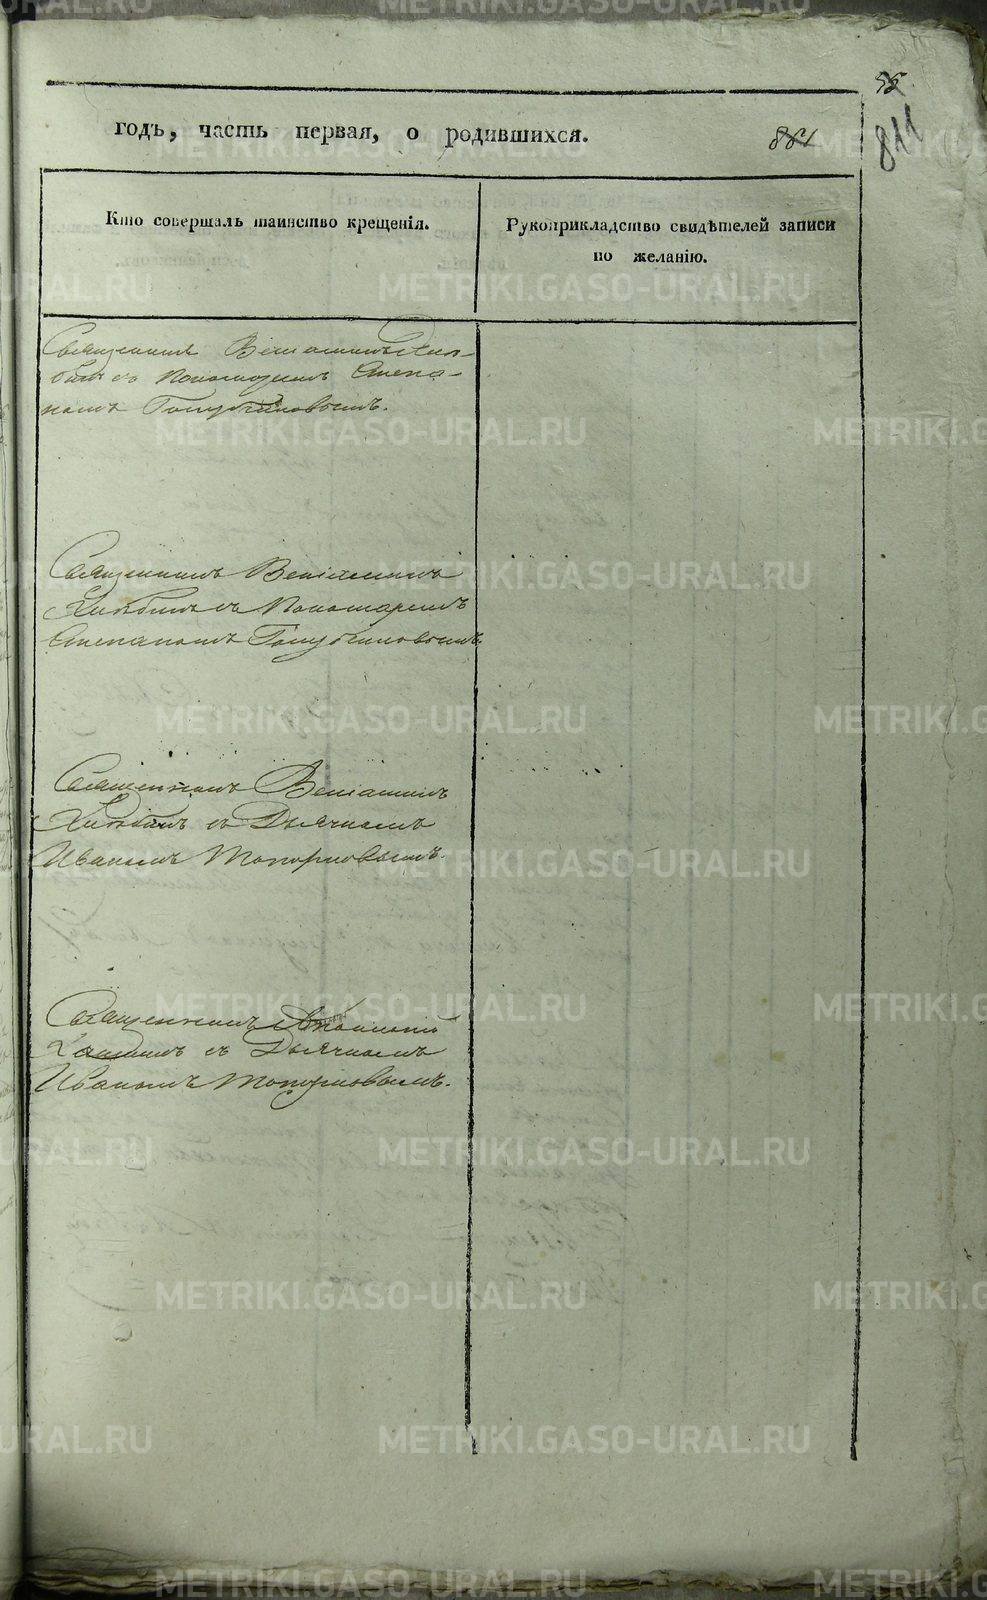 METRIKI.GASO-URAL.RU
годъ, часть первая, о родившихся.
811
Кто совершалъ таинство крещенія.
Рукоприкладство свидѣтелей записи
по желанію.
Священникъ Веніаминъ
съ Пономаремъ Степа-
номъ Голубчиковымъ.
Священникъ Веніаминъ
съ Пономаремъ
Степаномъ Голубчиковымъ
Священникъ Веніаминъ
съ Дьячкомъ
Иваномъ Топорковымъ.
Священникъ
съ Дьячкомъ
Иваномъ Топорковымъ.